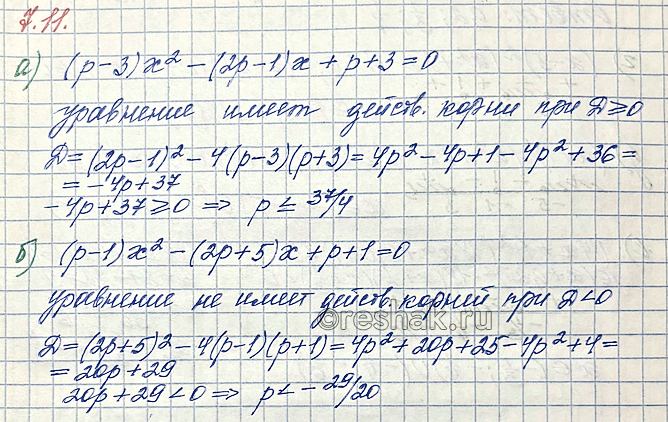 7.11.
а) (p-3)x² - (2p-1)x + p+3 = 0
уравнение имеет действ. корни при D≥0
D = (2p-1)² - 4(p-3)(p+3) = 4p² - 4p+1 - 4p² + 36 =
= -4p+37
-4p+37 ≥ 0 ⇒ p ≤ 37/4
б) (p-1)x² - (2p+5)x + p+1 = 0
уравнение не имеет действ. корней при D<0
©reshak.ru
D = (2p+5)² - 4(p-1)(p+1) = 4p² + 20p + 25 - 4p² + 4 =
= 20p + 29
20p + 29 < 0 ⇒ p < - 29/20